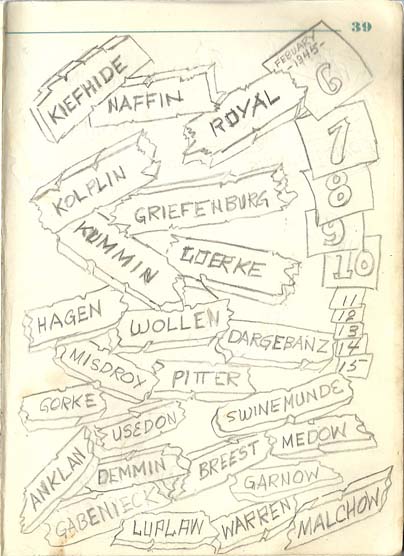 39
FEBUARY
-1945-
6
KIEFHIDE
NAFFIN
ROYAL
7
KOLPLIN
GRIEFENBURG
8
KUMMIN
GJERKE
9
10
HAGEN
WOLLEN
DARGEBANZ
11
12
13
14
15
MISDROY
PITTER
GORKE
USEDON
SWINEMUNDE
ANKLAN
DEMMIN
BREEST
MEDOW
GARNOW
GABENIECK
LUPLAW
WARREN
MALCHOW